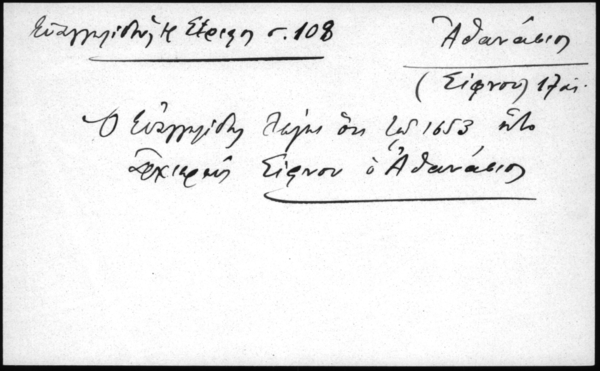 Εὐαγγελίδης Ἡ Σέριφος σ. 108
Ἀθανάσιος
(Σίφνου) 17 αι.
Ὁ Εὐαγγελίδης λέγει ὅτι τῷ 1653 ἦτο
ἀρχιερεὺς Σίφνου ὁ Ἀθανάσιος